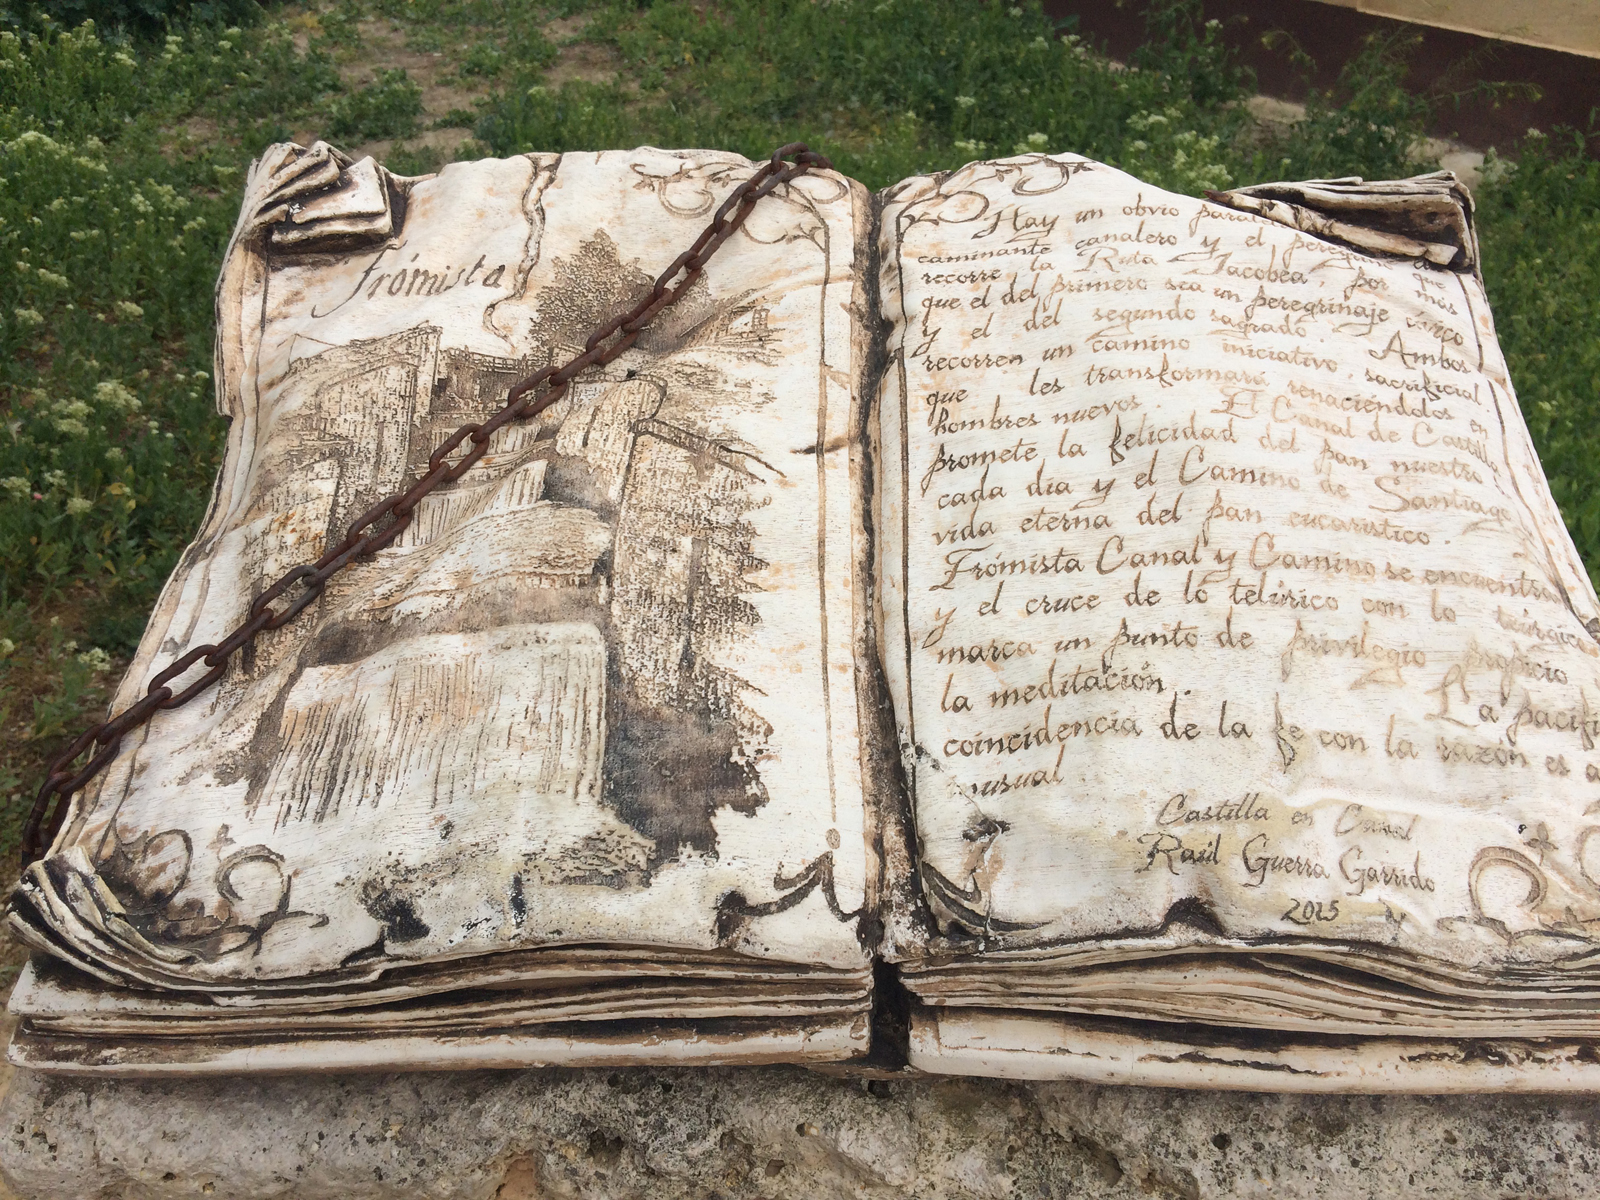 frómista
Hay un obvio
caminante canalero y el peregrino que
recorre la Ruta Jacobea, por más
que el del primero sea un peregrinaje cívico
y el del segundo sagrado. Ambos
recorren un camino iniciativo, sacrificial.
que les transformará renaciéndolos en
hombres nuevos. El Canal de Castilla
promete la felicidad del pan nuestro
cada dia y el Camino de Santiago
vida eterna del pan eucarístico.
Frómista Canal y Camino se encuentran
y el cruce de lo telúrico con lo teúrgico
marca un punto de privilegio propicio
la meditación. La
coincidencia de la fe con la razón es
inusual
Castilla en Canal
Raúl Guerra Garrido
2015